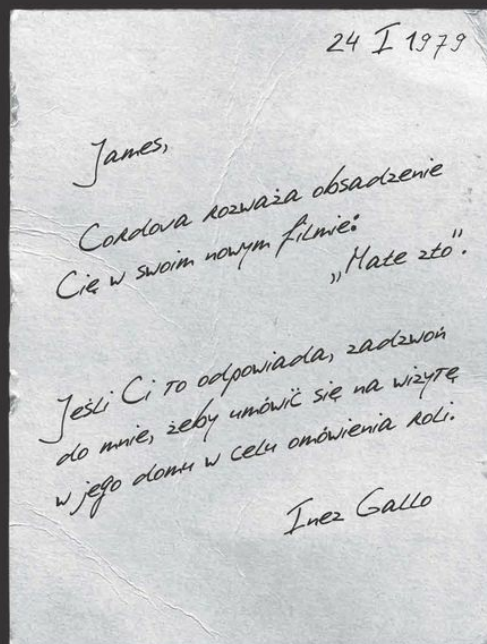 24 I 1979
James,
Cordova rozważa obsadzenie
Cię w swoim nowym filmie:
„Małe zło".
Jeśli Ci to odpowiada, zadzwoń
do mnie, żeby umówić się na wizytę
w jego domu w celu omówienia roli.
Inez Gallo